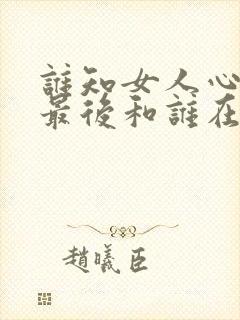 誰知女人心
最後和誰在
趙曦臣